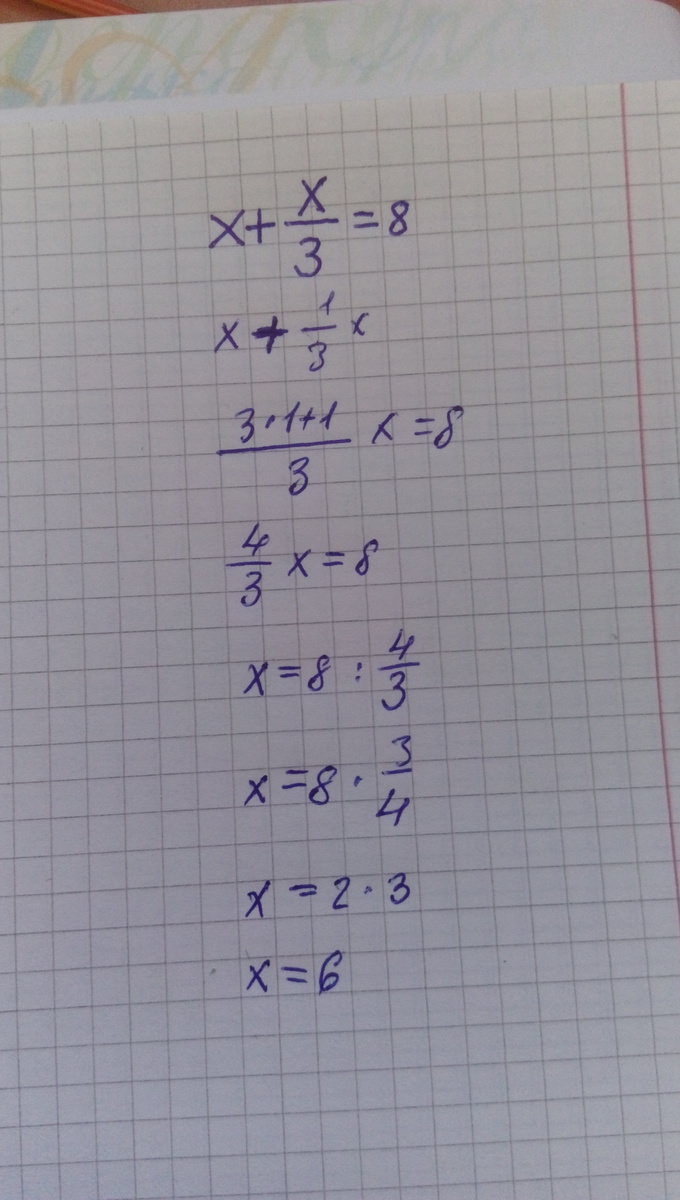 x+x/3=8
x+1/3 x
3·1+1/3 x=8
4/3 x=8
x=8:4/3
x=8·3/4
x=2·3
x=6